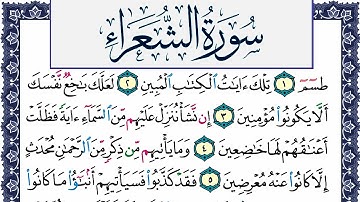 سُورَةُ الشُّعَرَاءِ
طسٓمٓ ١ تِلْكَ ءَايَٰتُ الْكِتَٰبِ الْمُبِينِ ٢ لَعَلَّكَ بَٰخِعٌ نَّفْسَكَ
أَلَّا يَكُونُوا۟ مُؤْمِنِينَ ٣ إِن نَّشَأْ نُنَزِّلْ عَلَيْهِم مِّنَ السَّمَآءِ ءَايَةً فَظَلَّتْ
أَعْنَٰقُهُمْ لَهَا خَٰضِعِينَ ٤ وَمَا يَأْتِيهِم مِّن ذِكْرٍ مِّنَ الرَّحْمَٰنِ مُحْدَثٍ
إِلَّا كَانُوا۟ عَنْهُ مُعْرِضِينَ ٥ فَقَدْ كَذَّبُوا۟ فَسَيَأْتِيهِمْ أَنۢبَٰٓؤُا۟ مَا كَانُوا۟